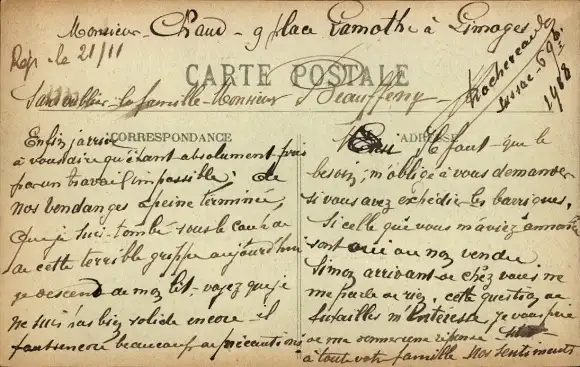 Monsieur - Chaud - 9 place Lamothe à Limoges
Rep. le 21/11
CARTE POSTALE
Sans oublier - la famille - Monsieur
Rochereau
1918
CORRESPONDANCE
ADRESSE
Enfin j'arrive
à vous dire qu'étant absolument pris
par un travail impossible, de
nos vendanges à peine terminée,
que je suis tombé sous le coup de
de cette terrible grippe aujourd'hui
je descend de mon lit - voyez que je
ne suis pas bien solide encore il
faut encore beaucoup de précautions
Il faut que le
besoin, m'oblige à vous demander
si vous avez expédier les barriques,
Si celle que vous m'aviez annoncé
sont oui ou non vendu
Simon arrivant de chez vous ne
me parle de rien, cette question de
futailles m'interesse, je vous prie
de me donner une réponse
à toute votre famille Nos sentiments